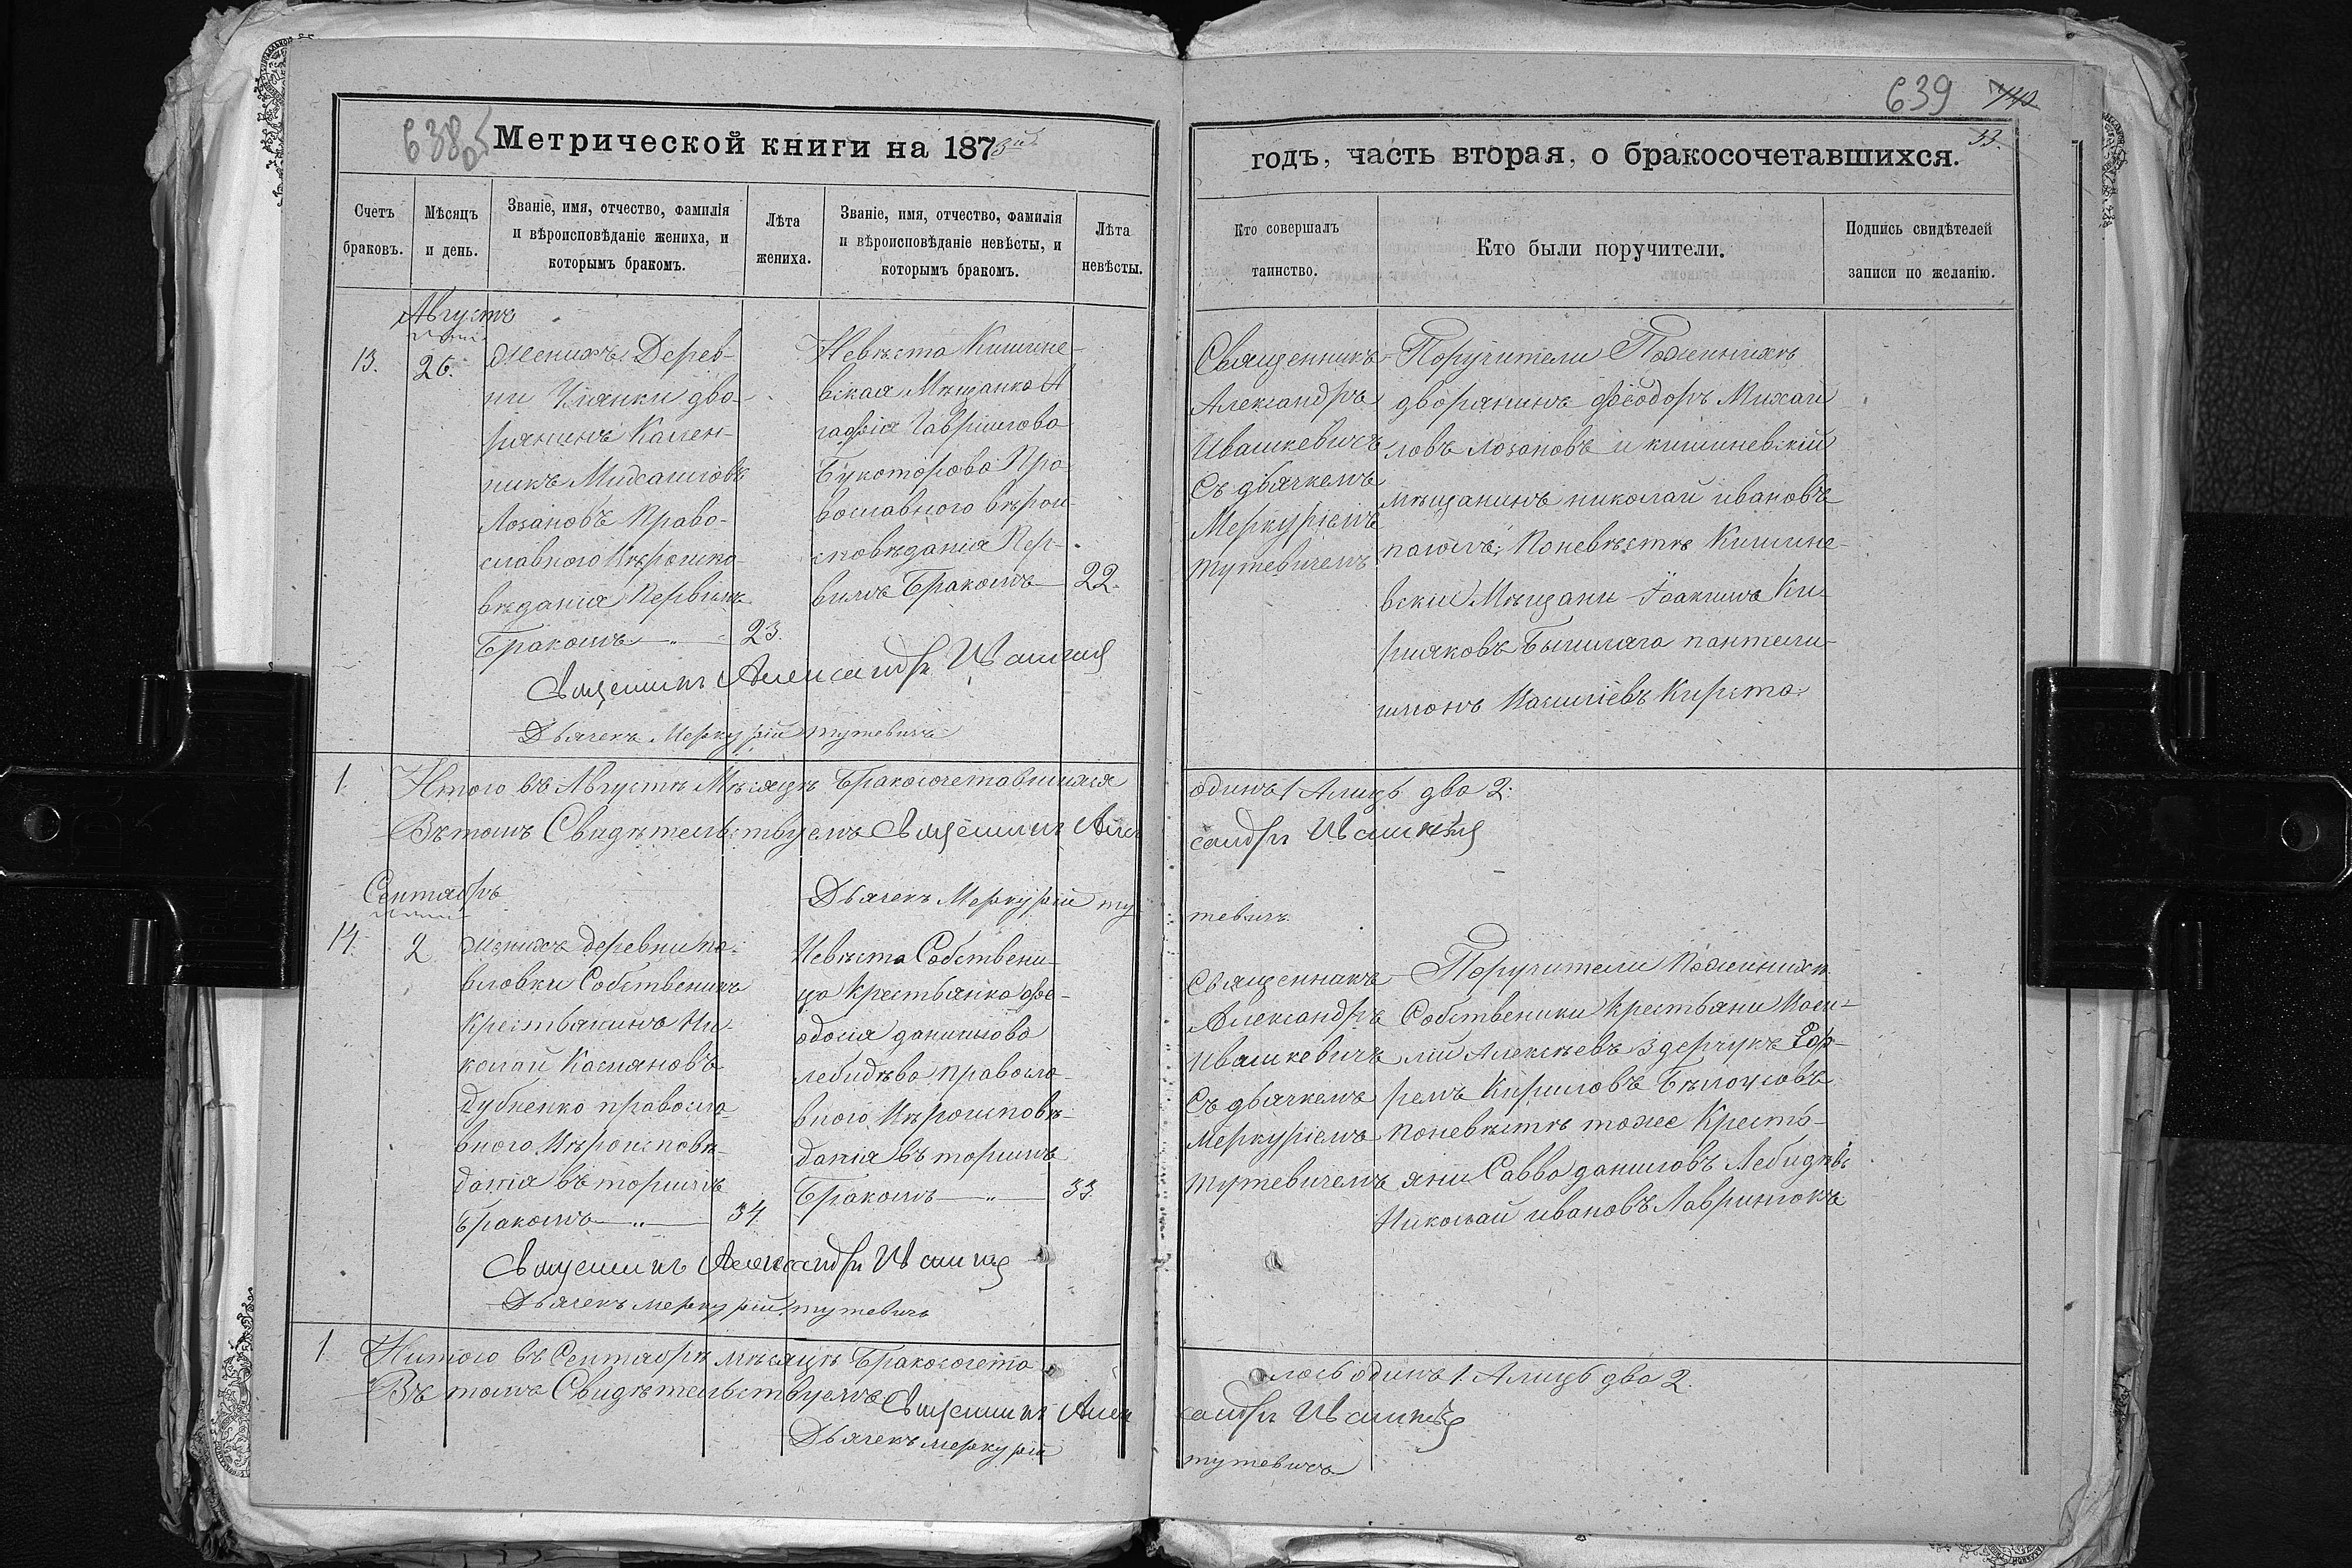 638 об
Метрической книги на 1873й
Счетъ браковъ.
Мѣсяцъ и день.
Званіе, имя, отчество, фамилія
и вѣроисповѣданіе жениха, и
которымъ бракомъ.
Лѣта
жениха.
Званіе, имя, отчество, фамилія
и вѣроисповѣданіе невѣсты, и
которымъ бракомъ.
Лѣта
невѣсты.
Августъ
13.
26.
Женихъ Дерев-
ни дво-
рянинъ Кален-
никъ Михаиловъ
Лозановъ Право-
славного Вѣроиспо-
вѣданія Первымъ
Бракомъ
23.
Невѣста Кишине-
вская Мѣщанка А
гафія Гавріилова
Букоторова Пра
вославного вѣрои
сповѣданія Пер-
вымъ Бракомъ
22.
Священникъ Александръ
Дьячекъ Меркурій тутевичъ
1.
Итого въ Августѣ Мѣсяцѣ Бракосочетавшихся
Въ томъ Свидѣтельствуемъ Священникъ Алек
Дьячекъ Меркурій ту
Сентябрь
14.
2
Женихъ деревни па-
вловки Собственикъ
Крестьянинъ Ни
колай Касіяновъ
Дубненко правосла
вного Вѣроисповѣ-
данія вторымъ
Бракомъ
34.
Невѣста Собствени-
ца Крестьянка Фе-
одосія данилова
лебидѣва правосла
вного Вѣроисповѣ-
данія вторымъ
Бракомъ
33
Священникъ Александръ
Дьячекъ меркурій тутевичъ
1.
Итого въ Сентябрѣ мѣсяцѣ Бракосочета
Въ томъ Свидѣтельствуемъ Священникъ Алек
Дьячекъ меркурій
639
33.
годъ, часть вторая, о бракосочетавшихся.
Кто совершалъ
таинство.
Кто были поручители.
Подпись свидѣтелей
записи по желанію.
Священникъ
Александръ
Ивашкевичъ
Съ дьячкемъ
Меркуріемъ
тутевичемъ
Поручители Поженихѣ
дворянинъ Феодоръ Михаи
ловъ Лозановъ и кишиневскій
мѣщанинъ николай ивановъ
Поневѣстѣ Кишине-
вскіи Мѣщани Іоакимъ Ки-
ріяковъ пантели-
імонъ Василіевъ Кирста
одинъ 1 Алицъ два 2.
сандръ Ивашкевич
тевичъ
Священникъ
Александръ
Ивашкевичъ
Съ дьячкемъ
Меркуріемъ
тутевичемъ
Поручители Поженихѣ
Собственики Крестьяни Васи-
лій Алексѣевъ Здерчукъ
Кириловъ Бѣлоусовъ
поневѣстѣ тоже Кресть-
яни Савва даниловъ Лебидѣвъ
Николай ивановъ Лавринюкъ
лось одинъ 1. Алицъ два 2.
сандръ Ивашкевич
тутевичъ